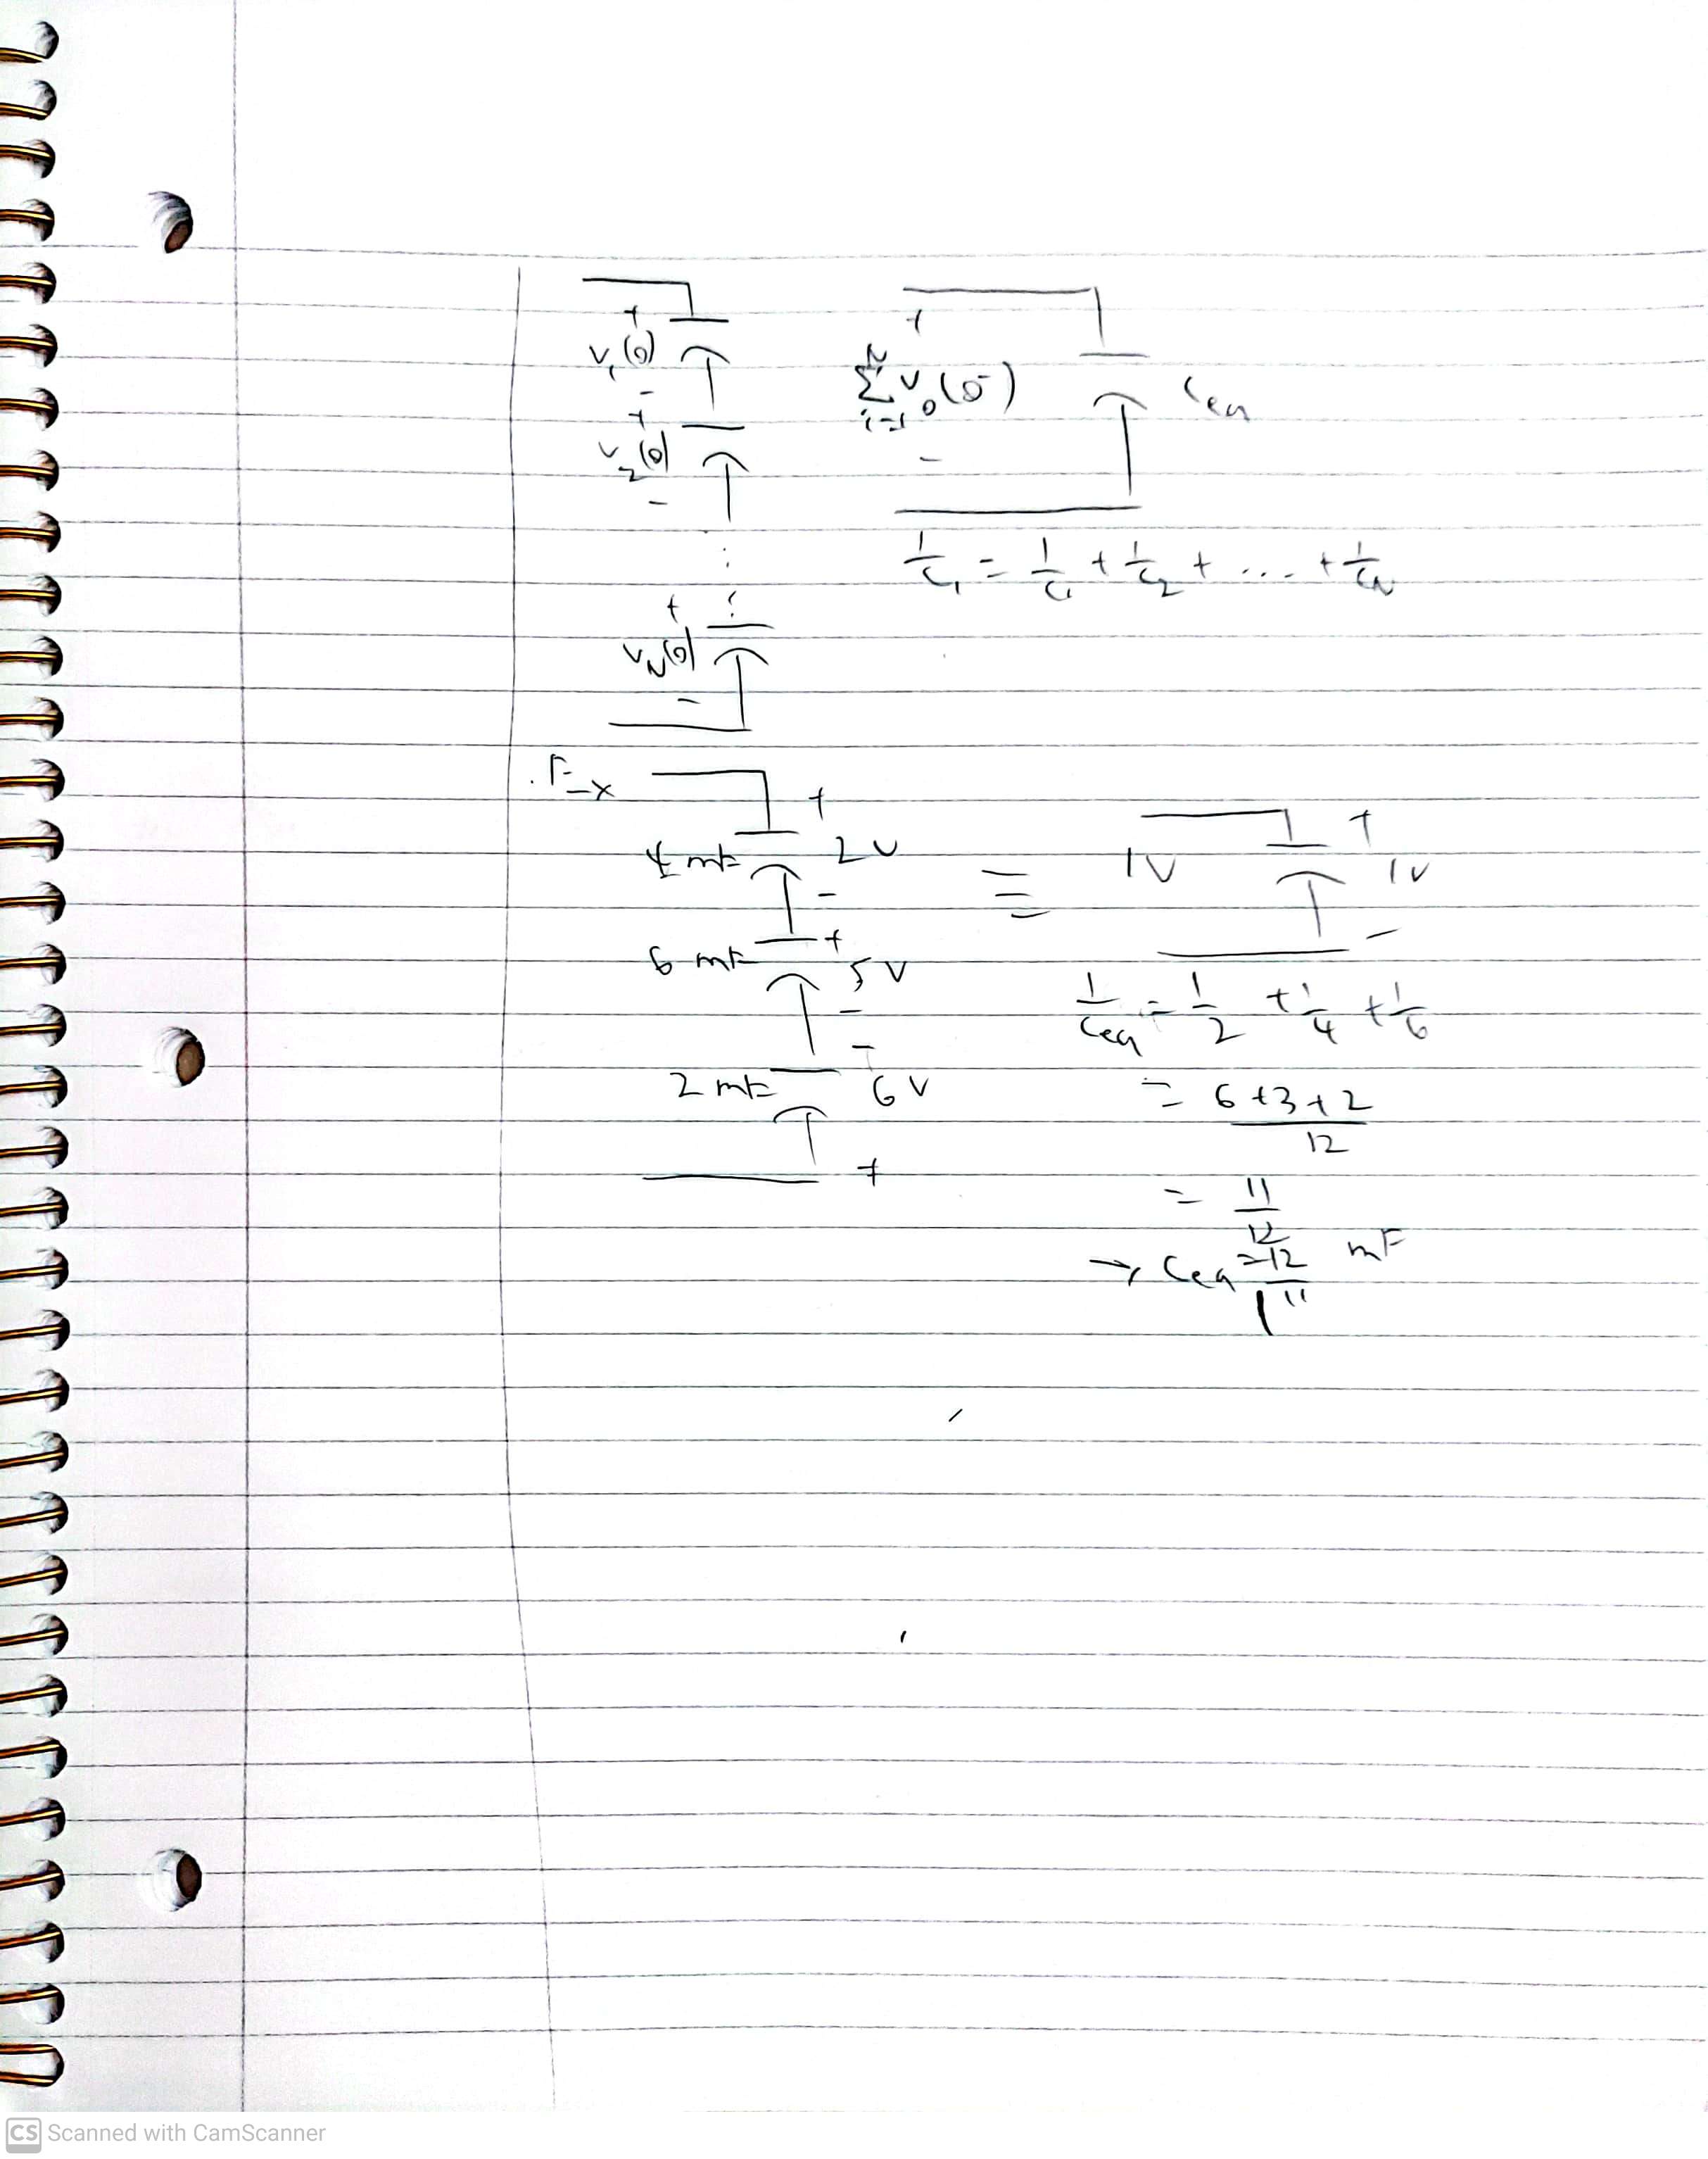 +
v₁(0)
-
+
v₂(0)
-
⋮
+
v_N(0)
-
+
N
Σ v₀(0⁻)
i=1
-
Ceq
1/C₁ = 1/C₁ + 1/C₂ + ... + 1/C_N
Ex
+
4 mF 2V
-
+
6 mF 5V
-
-
2 mF 6V
+
≡
+
1V 1V
-
1/Ceq = 1/2 + 1/4 + 1/6
= (6+3+2)/12
= 11/12
→ Ceq = 12/11 mF
CS Scanned with CamScanner